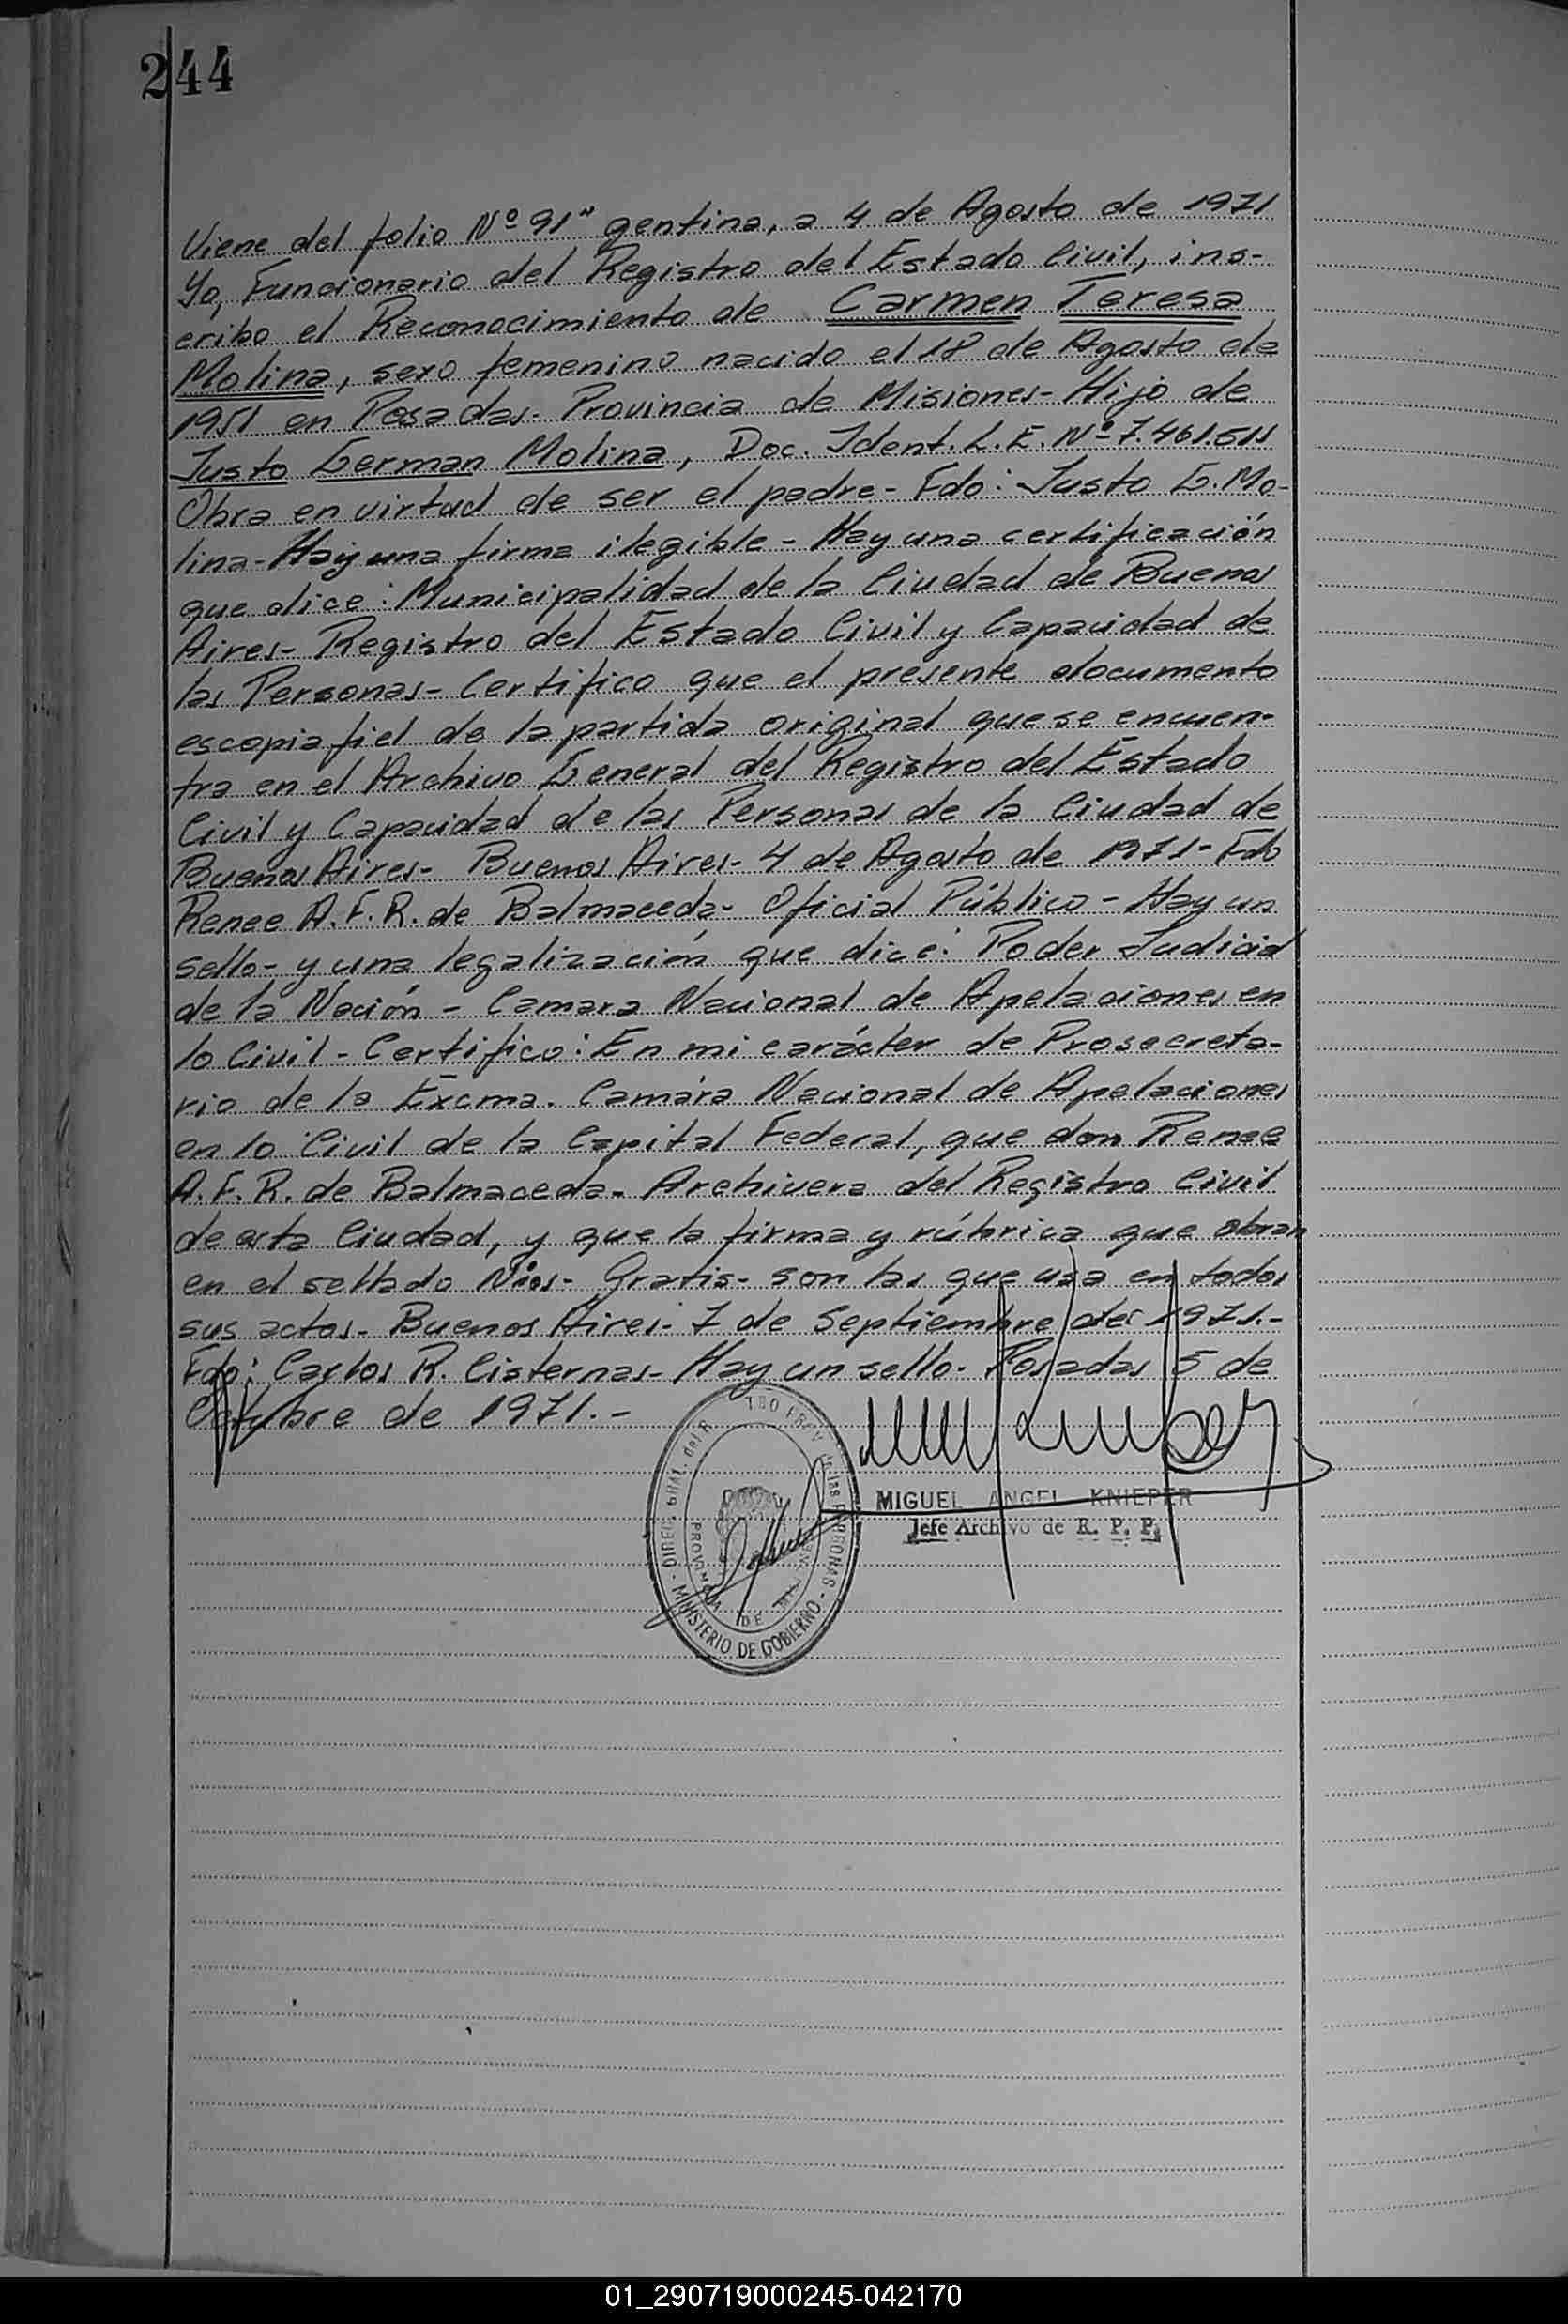 244
Viene del folio Nº 91" gentina, a 4 de Agosto de 1971
Yo, Funcionario del Registro del Estado Civil, ins-
cribo el Reconocimiento de Carmen Teresa
Molina, sexo femenino nacido el 18 de Agosto de
1951 en Posadas- Provincia de Misiones- Hijo de
Justo German Molina, Doc. Ident. L.E. Nº 7.461.511
Obra en virtud de ser el padre- Fdo: Justo G. Mo-
lina- Hay una firma ilegible- Hay una certificación
que dice: Municipalidad de la Ciudad de Buenos
Aires- Registro del Estado Civil y Capacidad de
las Personas- Certifico que el presente documento
es copia fiel de la partida original que se encuen-
tra en el Archivo General del Registro del Estado
Civil y Capacidad de las Personas de la Ciudad de
Buenos Aires- Buenos Aires- 4 de Agosto de 1971- Fdo
Renee A.F.R. de Balmaceda- Oficial Público- Hay un
sello- y una legalización que dice: Poder Judicial
de la Nación- Camara Nacional de Apelaciones en
lo Civil- Certifico: En mi carácter de Prosecreta-
rio de la Excma. Camára Nacional de Apelaciones
en lo Civil de la Capital Federal, que don Renee
A.F.R. de Balmaceda- Archivera del Registro Civil
de esta Ciudad, y que la firma y rúbrica que obran
en el sellado Nros- Gratis- son las que usa en todos
sus actos- Buenos Aires- 7 de Septiembre de 1971.-
Fdo: Carlos R. Cisternas- Hay un sello- Posadas 5 de
Octubre de 1971.-
MIGUEL ANGEL KNIEPER
Jefe Archivo de R. P. P.
DIREC. GRAL. del R. de las PERSONAS
PROVINCIA DE MISIONES
MINISTERIO DE GOBIERNO
01_290719000245-042170